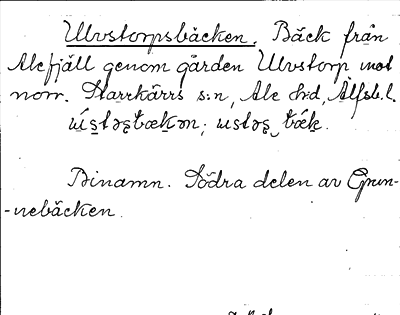 Ulvstorpsbäcken. Bäck från
Alefjäll genom gården Ulvstorp mot
norr. Starrkärrs s:n, Ale hd, Älfsb. l.
Binamn. Södra delen av Grun-
-nebäcken.